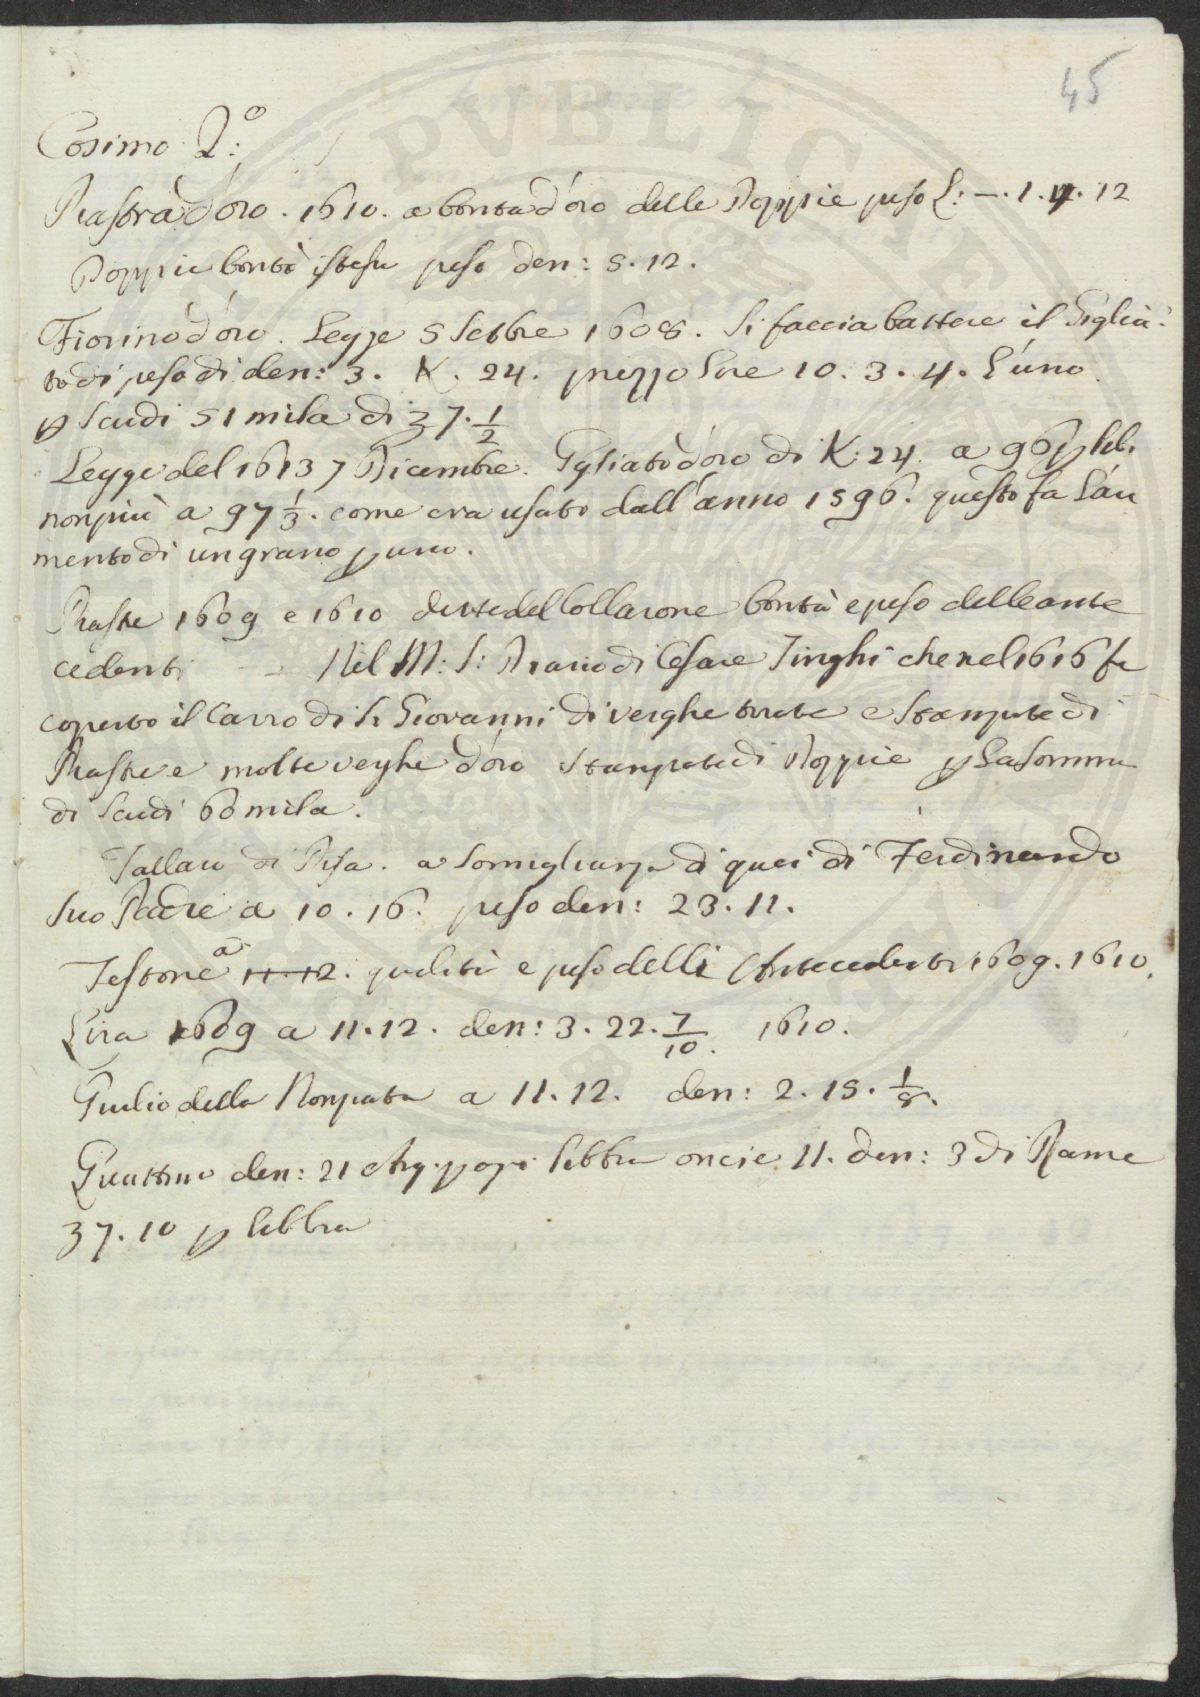 45
Cosimo 2.º
Piastra d'oro. 1610. a bontà d'oro delle Doppie peso L: —. 1. 4. 12
Doppie bontà istesa peso den: 5. 12.
Fiorino d'oro. Legge 5 Settbre 1608. Si faccia battere il Giglia:
to di peso di den: 3. K. 24. prezzo Lire 10. 3. 4. L'uno
p Scudi 51 mila di 37. 1/2
Legge del 1613 7 Dicembre. Gigliato d'oro di K: 24. a 96 p lib.
non più a 97 1/3. come era usato dall'anno 1596. questo fa l'au
mento di un grano p uno.
Piastre 1609 e 1610 dette del Collarone bontà e peso delle ante
cedenti — Nel M: S: Diario di Cesare Tinghi che nel 1616 fu
coperto il Carro di S. Giovanni di verghe tirate e stampate di
Piastre e molte verghe d'oro stampate di Doppie p La somma
di Scudi 60 mila.
Tallaro di Pisa. a somiglianza di quei di Ferdinando
suo Padre a 10. 16. peso den: 23. 11.
Testone a 11 12. qualità e peso delli Antecedenti 1609. 1610.
Lira 1609 a 11. 12. den: 3. 22. 7/10. 1610.
Giulio della Nonpiata a 11. 12. den: 2. 15. 1/8.
Quattrino den: 21 Arg. p ogni libbra oncie 11. den: 3 di Rame
37. 10 p libbra
PVBLIC